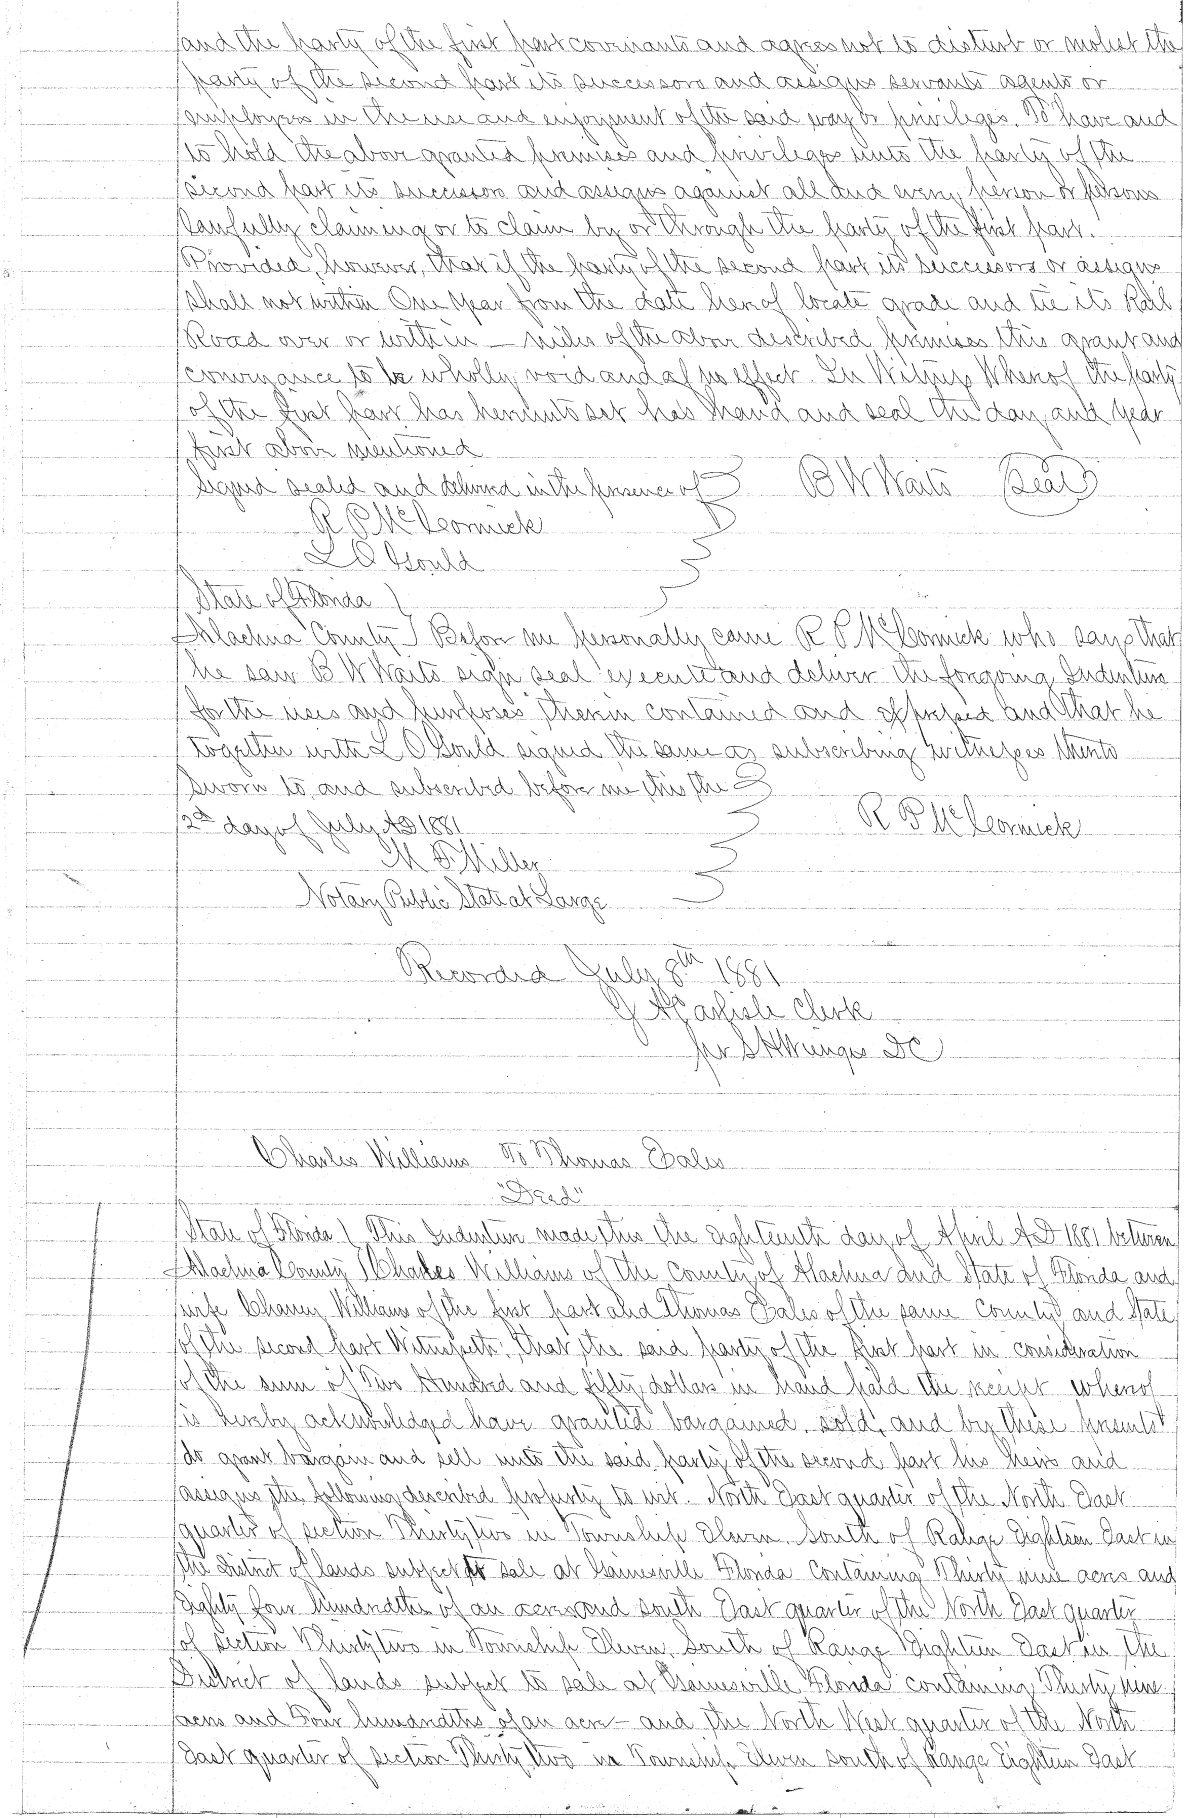 and the party of the first part covenants and agrees not to disturb or molest the
party of the second part its successors and assigns servants agents or
employees in the use and enjoyment of the said way or privileges. To have and
to hold the above granted premises and privileges unto the party of the
second part its successors and assigns against all and every person or persons
lawfully claiming or to claim by or through the party of the first part.
Provided, however, that if the party of the second part its successors or assigns
shall not within One Year from the date hereof locate grade and tie its Rail
Road over or within — miles of the above described premises this grant and
conveyance to be wholly void and of no effect. In Witness Whereof the party
of the first part has hereunto set his hand and seal the day and year
first above mentioned
Signed sealed and delivered in the presence of B W Waits Seal
R P McCormick
L O Gould
State of Florida
Alachua County } Before me personally came R P McCormick who says that
he saw B W Waits sign seal execute and deliver the forgoing Indenture
for the uses and purposes therein contained and expressed and that he
together with L O Gould signed the same as subscribing witnesses thereto
Sworn to and subscribed before me this the
2nd day of July AD 1881 R P McCormick
M F Miller
Notary Public State at Large
Recorded July 8th 1881
J A Carlisle Clerk
per S H Wienges DC
Charles Williams To Thomas Eales
"Deed"
State of Florida } This Indenture made this the Eighteenth day of April AD 1881 between
Alachua County } Charles Williams of the County of Alachua and State of Florida and
wife Chaney Williams of the first part and Thomas Eales of the same County and State
of the second part Witnesseth, that the said party of the first part in consideration
of the sum of Two Hundred and fifty dollars in hand paid the receipt whereof
is hereby acknowledged have granted bargained, sold, and by these presents
do grant bargain and sell unto the said party of the second part his heirs and
assigns the following described property to wit. North East quarter of the North East
quarter of section Thirty two in Township Eleven, South of Range Eighteen East in
the District of lands subject to sale at Gainesville Florida Containing Thirty nine acres and
Eighty four hundredths of an acre and south East quarter of the North East quarter
of section Thirty two in Township Eleven, South of Range Eighteen East in the
District of lands subject to sale at Gainesville Florida containing Thirty nine
acres and Four hundredths of an acre — and the North West quarter of the North
East quarter of section Thirty two in Township Eleven south of Range Eighteen East